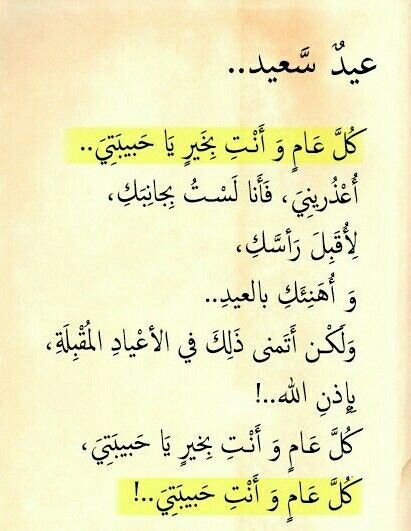 عيدٌ سَّعيد..
كُلَّ عَامٍ وَ أَنْتِ بِخَيرٍ يَا حَبيبَتِيَ..
أُعْذُرينِيَ، فَأَنا لَسْتُ بِجانِبَكِ،
لِأُقَبِلَ رَأسَّكِ،
وَ أُهَنِئَكِ بالعيدِ..
وَلَكْن أَتَمنى ذَلِكَ في الأعْيادِ المُقْبِلَةِ،
بِإذنِ الله..!
كُلَّ عَامٍ وَ أَنْتِ بِخيرٍ يَا حَبيبَتِيَ،
كُلَّ عَامٍ وَ أَنْتِ حَبيبَتِيَ..!